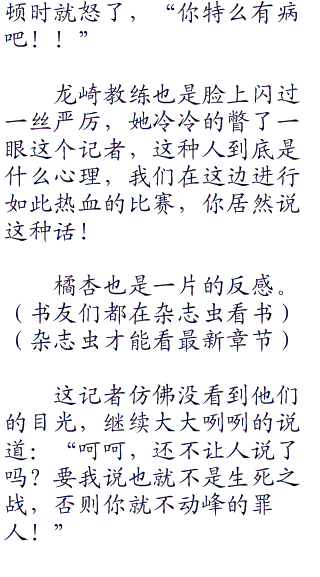 顿时就怒了，“你特么有病
吧！！”
龙崎教练也是脸上闪过
一丝严厉，她冷冷的瞥了一
眼这个记者，这种人到底是
什么心理，我们在这边进行
如此热血的比赛，你居然说
这种话！
橘杏也是一片的反感。
（书友们都在杂志虫看书）
（杂志虫才能看最新章节）
这记者仿佛没看到他们
的目光，继续大大咧咧的说
道：“呵呵，还不让人说了
吗？要我说也就不是生死之
战，否则你就不动峰的罪
人！”